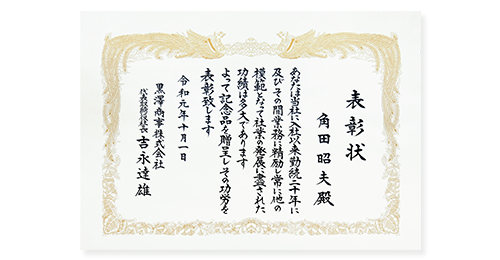 表彰状
角田昭夫殿
あなたは当社に入社以来勤続二十年に
及びその間業務に精励し常に他の
模範となって社業の発展に盡された
功績は多大であります
よって記念品を贈呈しその功労を
表彰致します
令和元年十月一日
黒澤商事株式会社
代表取締役社長 吉永達雄